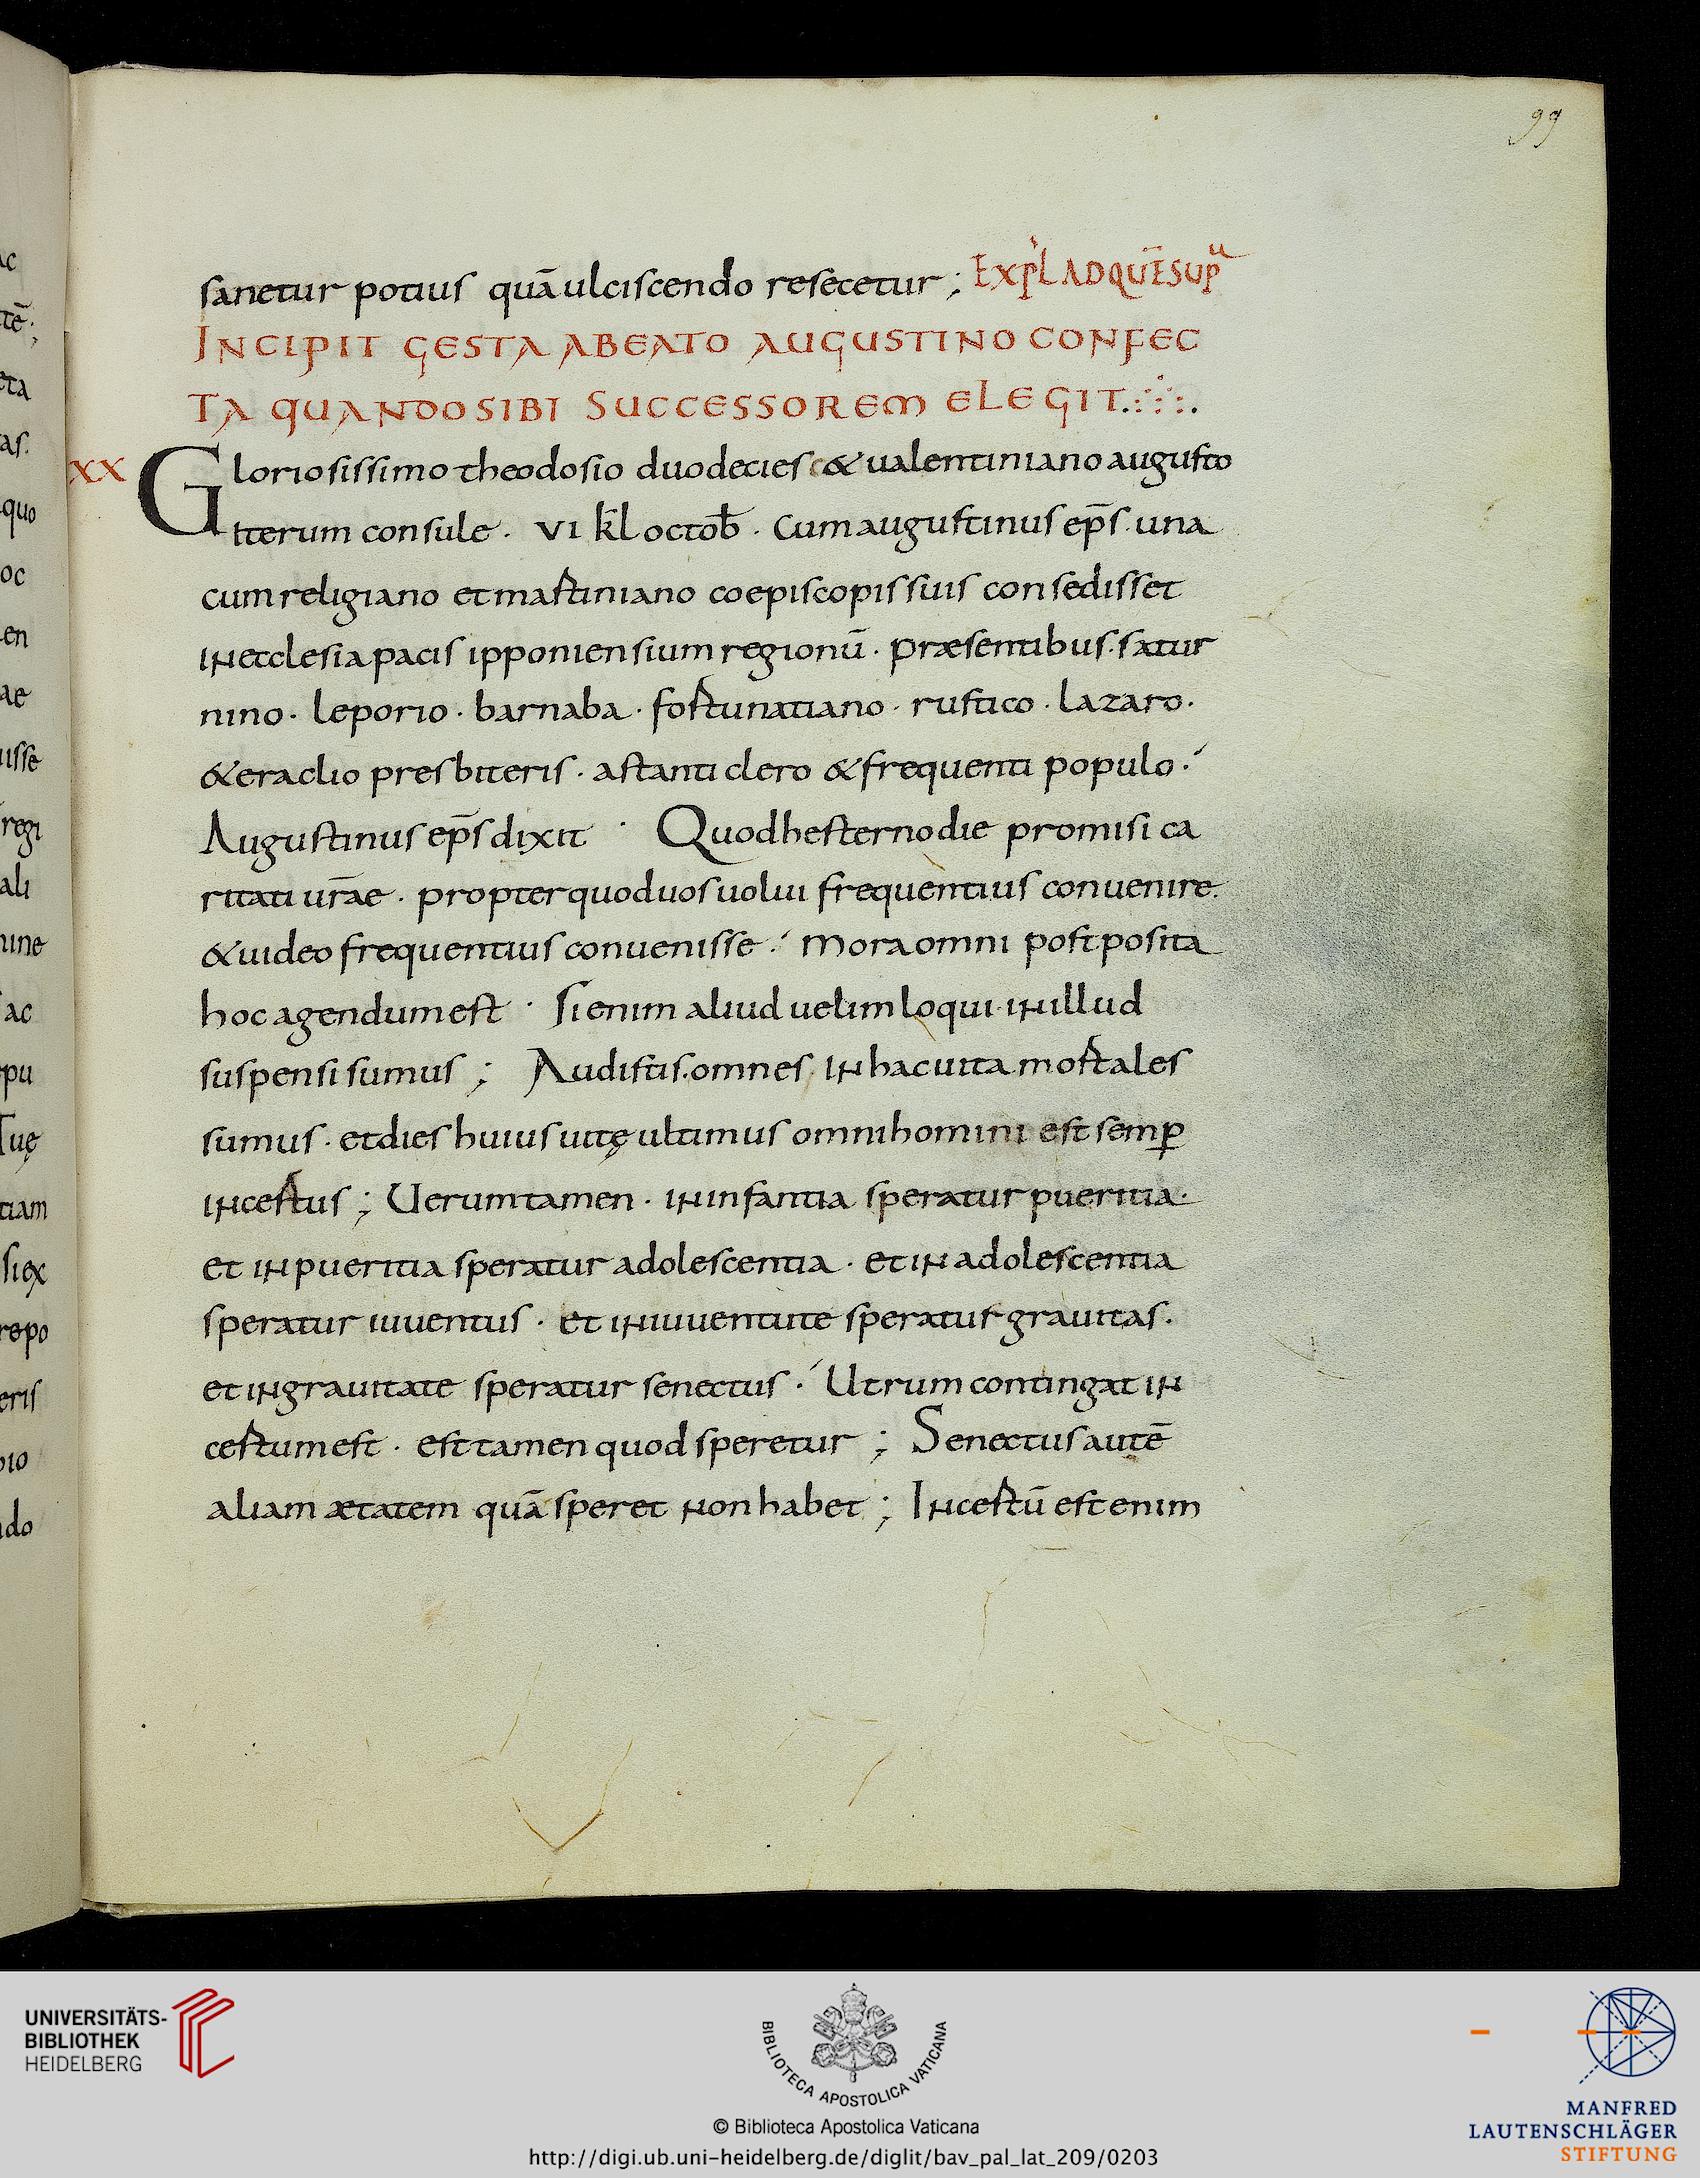 99
sanetur potius quā ulciscendo resecetur ; EXPL AD QUĒ SUPᵃ
INCIPIT GESTA A BEATO AUGUSTINO CONFEC
TA QUANDO SIBI SUCCESSOREM ELEGIT
XX Gloriosissimo theodosio duodecies & ualentiniano augusto
iterum consule . VI kł octob̄ . Cum augustinus ep̄s . una
cum religiano et mastiniano coepiscopis suis consedisset
in ecclesia pacis ipponiensium regionū . præsentibus . satur
nino . leporio . barnaba . fortunatiano . rustico . lazaro .
& eraclio presbiteris . astanti clero & frequenti populo .
Augustinus ep̄s dixit . Quod hesterno die promisi ca
ritati ur̄ae . propter quod uos uolui frequentius conuenire .
& uideo frequentius conuenisse . mora omni postposita
hoc agendum est . Si enim aliud uelim loqui . in illud
suspensi sumus ; Audistis . omnes in hac uita mortales
sumus . et dies huius uitę ultimus omni homini est semꝑ
incertus ; Uerumtamen . in infantia speratur pueritia .
et in pueritia speratur adolescentia . et in adolescentia
speratur iuuentus . et in iuuentute speratur grauitas .
et in grauitate speratur senectus . Utrum contingat in
certum est . est tamen quod speretur ; Senectus autē
aliam ætatem quā speret non habet ; Incertū est enim
UNIVERSITÄTS-
BIBLIOTHEK
HEIDELBERG
BIBLIOTECA APOSTOLICA VATICANA
© Biblioteca Apostolica Vaticana
http://digi.ub.uni-heidelberg.de/diglit/bav_pal_lat_209/0203
MANFRED
LAUTENSCHLÄGER
STIFTUNG